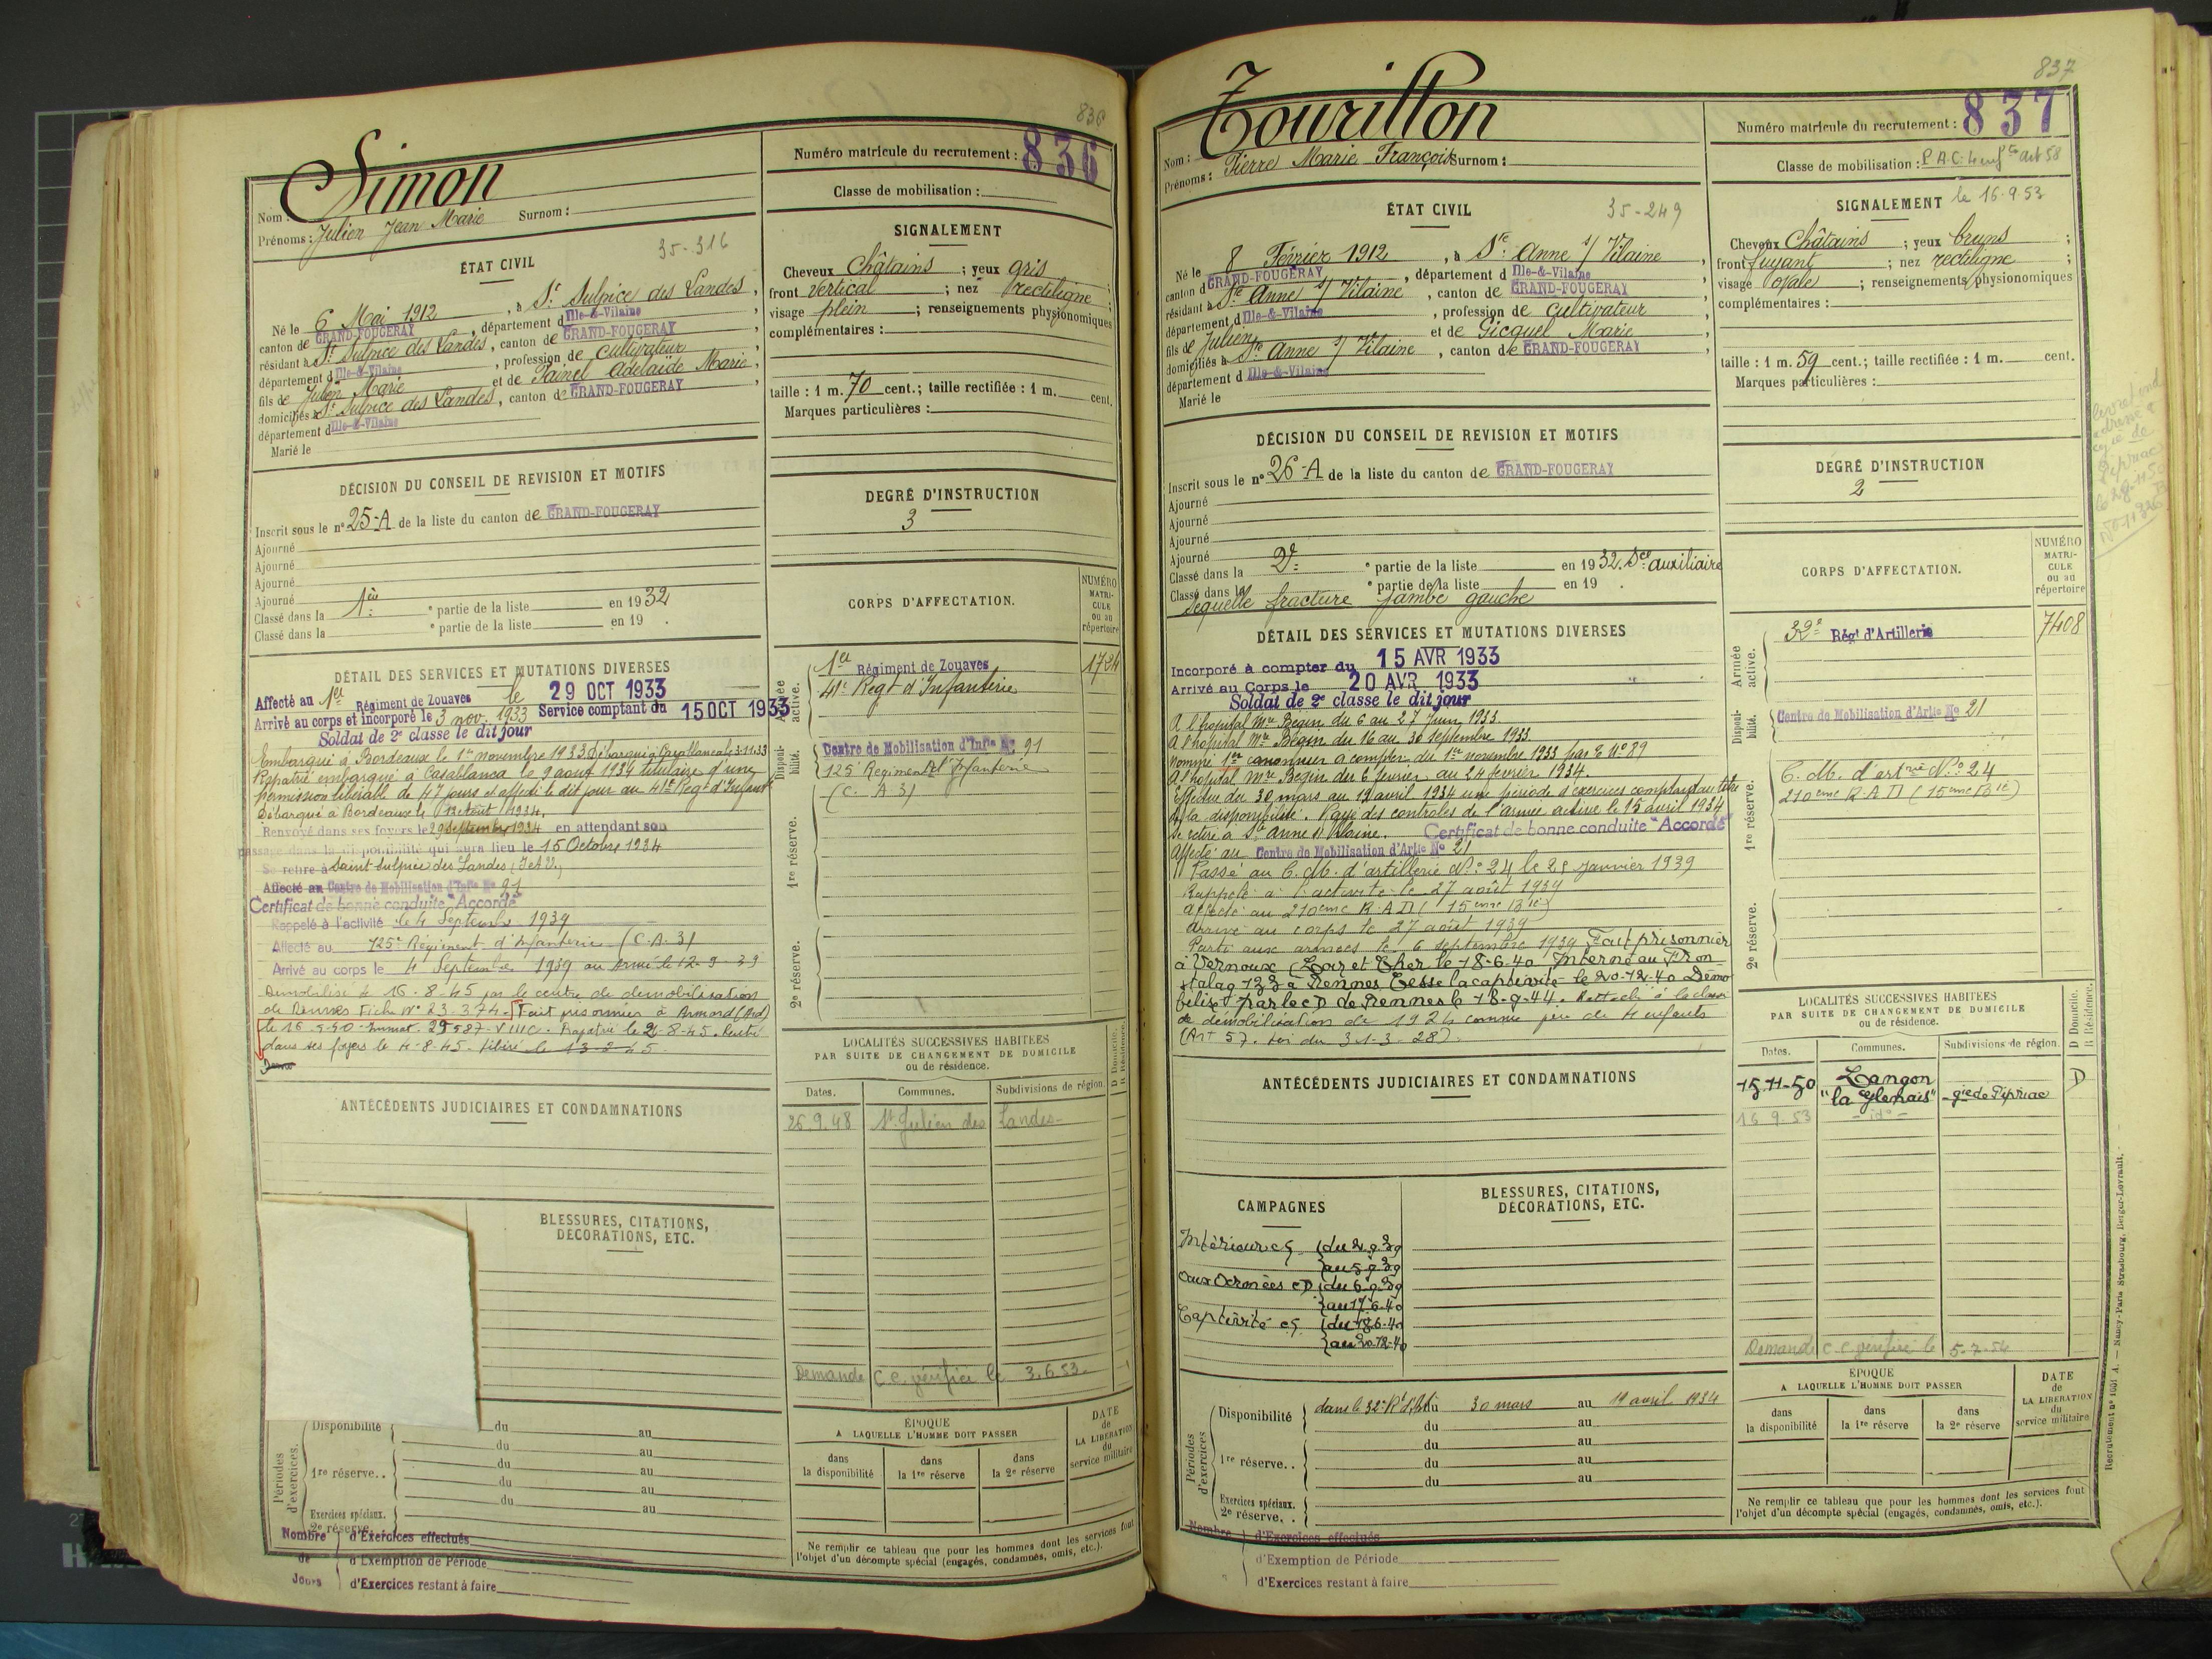 836
Simon
Numéro matricule du recrutement : 836
Nom :
Prénoms : Julien Jean Marie Surnom :
Classe de mobilisation :
35-316
ÉTAT CIVIL
Né le 6 Mai 1912, à St Sulpice des Landes,
canton de GRAND-FOUGERAY, département d Ille-&-Vilaine
résidant à St Sulpice des Landes, canton de GRAND-FOUGERAY
département d Ille-&-Vilaine, profession de cultivateur
fils de Julien Marie et de Painel Adelaïde Marie
domiciliés à St Sulpice des Landes, canton de GRAND-FOUGERAY
département d Ille-&-Vilaine
Marié le
SIGNALEMENT
Cheveux Châtains ; yeux gris
front vertical ; nez rectiligne
visage plein ; renseignements physionomiques
complémentaires :
taille : 1 m. 70 cent.; taille rectifiée : 1 m. cent.
Marques particulières :
DÉCISION DU CONSEIL DE REVISION ET MOTIFS
Inscrit sous le n° 25-A de la liste du canton de GRAND-FOUGERAY
Ajourné
Ajourné
Ajourné
Ajourné
Classé dans la 1ère ° partie de la liste en 1932
Classé dans la ° partie de la liste en 19 .
DEGRÉ D'INSTRUCTION
3
CORPS D'AFFECTATION.
NUMÉRO MATRI-CULE ou au répertoire
Armée active.
1er Régiment de Zouaves 1724
41e Regt d'Infanterie
Disponi-bilité.
Centre de Mobilisation d'Infie No 91
125e Regiment d'Infanterie
(C. A 3)
1re réserve.
2e réserve.
DÉTAIL DES SERVICES ET MUTATIONS DIVERSES
Affecté au 1er Régiment de Zouaves le 29 OCT 1933
Arrivé au corps et incorporé le 3 nov. 1933 Service comptant du 15 OCT 1933
Soldat de 2e classe le dit jour
Embarqué à Bordeaux le 1er novembre 1933 Débarqué à Casablanca le 3.11.33
Rapatrié embarqué à Casablanca le 9 aout 1934 titulaire d'une
permission libérable de 47 jours et affecté le dit jour au 41e Regt d'Infant
Débarqué à Bordeaux le 12 Aout 1934.
Renvoyé dans ses foyers le 29 Septembre 1934 en attendant son
passage dans la disponibilité qui aura lieu le 15 Octobre 1934
Se retire à Saint Sulpice des Landes (I et V.)
Affecté au Centre de Mobilisation d'Infie No 91
Certificat de bonne conduite "Accordé"
Rappelé à l'activité le 4 Septembre 1939
Affecté au 125e Régiment d'Infanterie (C.A.3)
Arrivé au corps le 4 Septembre 1939 au Armé le 12-9-39
Démobilisé le 16-8-45 par le centre de démobilisation
de Rennes Fiche N° 23.374. Fait prisonnier à Armond (Ard)
le 16-5-40 Immat. 29587 - VIIIC. Rapatrié le 2-8-45. Rentré
dans ses foyers le 4-8-45. Libéré le 13-2-45.
LOCALITÉS SUCCESSIVES HABITÉES
PAR SUITE DE CHANGEMENT DE DOMICILE
ou de résidence.
D Domicile. R Résidence.
Dates. Communes. Subdivisions de région.
26.9.48 St. Julien des Landes
Demande C.C. vérifiée le 3.6.53.
ANTÉCÉDENTS JUDICIAIRES ET CONDAMNATIONS
BLESSURES, CITATIONS,
DÉCORATIONS, ETC.
Périodes d'exercices.
Disponibilité du au
du au
1re réserve.. du au
du au
du au
Exercices spéciaux.
2e réserve..
Nombre de Jours
d'Exercices effectués
d'Exemption de Période
d'Exercices restant à faire
ÉPOQUE
A LAQUELLE L'HOMME DOIT PASSER
dans la disponibilité
dans la 1re réserve
dans la 2e réserve
DATE de LA LIBÉRATION du service militaire
Ne remplir ce tableau que pour les hommes dont les services font
l'objet d'un décompte spécial (engagés, condamnés, omis, etc.).
837
Tourillon
Numéro matricule du recrutement : 837
Nom : Surnom :
Prénoms : Pierre Marie François
Classe de mobilisation : P.A.C. 4 enfts art 58
le 16-9-53
ÉTAT CIVIL
35-249
Né le 8 Février 1912, à Ste Anne s/ Vilaine,
canton d GRAND-FOUGERAY, département d Ille-&-Vilaine
résidant à Ste Anne s/ Vilaine, canton de GRAND-FOUGERAY
département d Ille-&-Vilaine, profession de cultivateur
fils de Julien et de Gicquel Marie
domiciliés à Ste Anne s/ Vilaine, canton de GRAND-FOUGERAY
département d Ille-&-Vilaine
Marié le
SIGNALEMENT
Cheveux Châtains ; yeux bruns ;
front fuyant ; nez rectiligne ;
visage ovale ; renseignements physionomiques
complémentaires :
taille : 1 m. 59 cent.; taille rectifiée : 1 m. cent.
Marques particulières :
DÉCISION DU CONSEIL DE REVISION ET MOTIFS
Inscrit sous le n° 26-A de la liste du canton de GRAND-FOUGERAY
Ajourné
Ajourné
Ajourné
Ajourné
Classé dans la 2e ° partie de la liste en 1932. Sce auxiliaire
Classé dans la ° partie de la liste en 19 .
Sequelle fracture jambe gauche
DEGRÉ D'INSTRUCTION
2
CORPS D'AFFECTATION.
NUMÉRO MATRI-CULE ou au répertoire
Armée active.
32e Régt d'Artillerie 7408
Disponi-bilité.
Centre de Mobilisation d'Artie No 21
1re réserve.
C. M. d'artrie N° 24
210eme R.A.D (15eme Bie)
2e réserve.
DÉTAIL DES SERVICES ET MUTATIONS DIVERSES
Incorporé à compter du 15 AVR 1933
Arrivé au Corps le 20 AVR 1933
Soldat de 2e classe le dit jour
A l'hopital Mre Begin du 6 au 27 Juin 1933.
A l'hopital Mre Begin du 16 au 30 Septembre 1933.
nommé 1er canonnier à compter du 1er novembre 1933 par O N° 89
A l'hopital Mre Begin du 6 fevrier au 24 fevrier 1934.
Effectue du 30 mars au 19 avril 1934 une période d'exercices comptant au titre
de la disponibilité. Rayé des controles de l'armée active le 15 avril 1934
Se retire à Ste Anne s/ Vilaine. Certificat de bonne conduite "Accordé"
Affecté au Centre de Mobilisation d'Artie No 21
Passé au C. M. d'artillerie N° 24 le 25 Janvier 1939
Rappelé à l'activité le 27 août 1939
affecté au 210eme R.A.D (15eme Bie)
arrivé au corps le 27 août 1939
Parti aux armées le 6 septembre 1939 Fait prisonnier
à Vernoux (Loir et Cher le 18-6-40 Interné au Fron-
stalag 133 à Rennes Cesse la captivité le 20-12-40 Démo
bilisé par le CD de Rennes le 18-9-44. Rattaché à la classe
de démobilisation de 1924 comme père de 4 enfants
(Art 57. Loi du 31-3-28).
LOCALITÉS SUCCESSIVES HABITÉES
PAR SUITE DE CHANGEMENT DE DOMICILE
ou de résidence.
D Domicile. R Résidence.
Dates. Communes. Subdivisions de région.
15-11-50 Langon gie de Pipriac D
"la Glenais"
16 9.53 - ido -
Demande C.C. vérifiée le 5-7-54
ANTÉCÉDENTS JUDICIAIRES ET CONDAMNATIONS
CAMPAGNES
Intérieur CS du 2-9-39
au 5-9-39
Aux Armées CD du 6-9-39
au 17-6-40
Captivité CS du 18-6-40
au 20-12-40
BLESSURES, CITATIONS,
DÉCORATIONS, ETC.
Périodes d'exercices
Disponibilité dans le 32e Rt d'Art. du 30 mars au 19 avril 1934
du au
1re réserve.. du au
du au
du au
Exercices spéciaux.
2e réserve. .
Nombre
d'Exercices effectués
d'Exemption de Période
d'Exercices restant à faire
ÉPOQUE
A LAQUELLE L'HOMME DOIT PASSER
dans la disponibilité
dans la 1re réserve
dans la 2e réserve
DATE de LA LIBÉRATION du service militaire
Ne remplir ce tableau que pour les hommes dont les services font
l'objet d'un décompte spécial (engagés, condamnés, omis, etc.).
Nancy-Paris Strasbourg, Berger-Levrault.